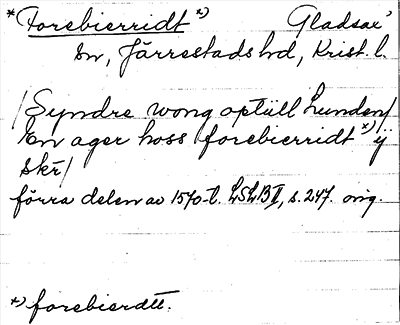 *Forebierridt *) Gladsax'
sn, Järrestads hd, Krist. l.
/Syndre wong optill Lunden/
En ager hoss forebierridt *) ij
skr/
förra delen av 1570-t. LSLB II, s. 247. orig.
*) forebierdtt.